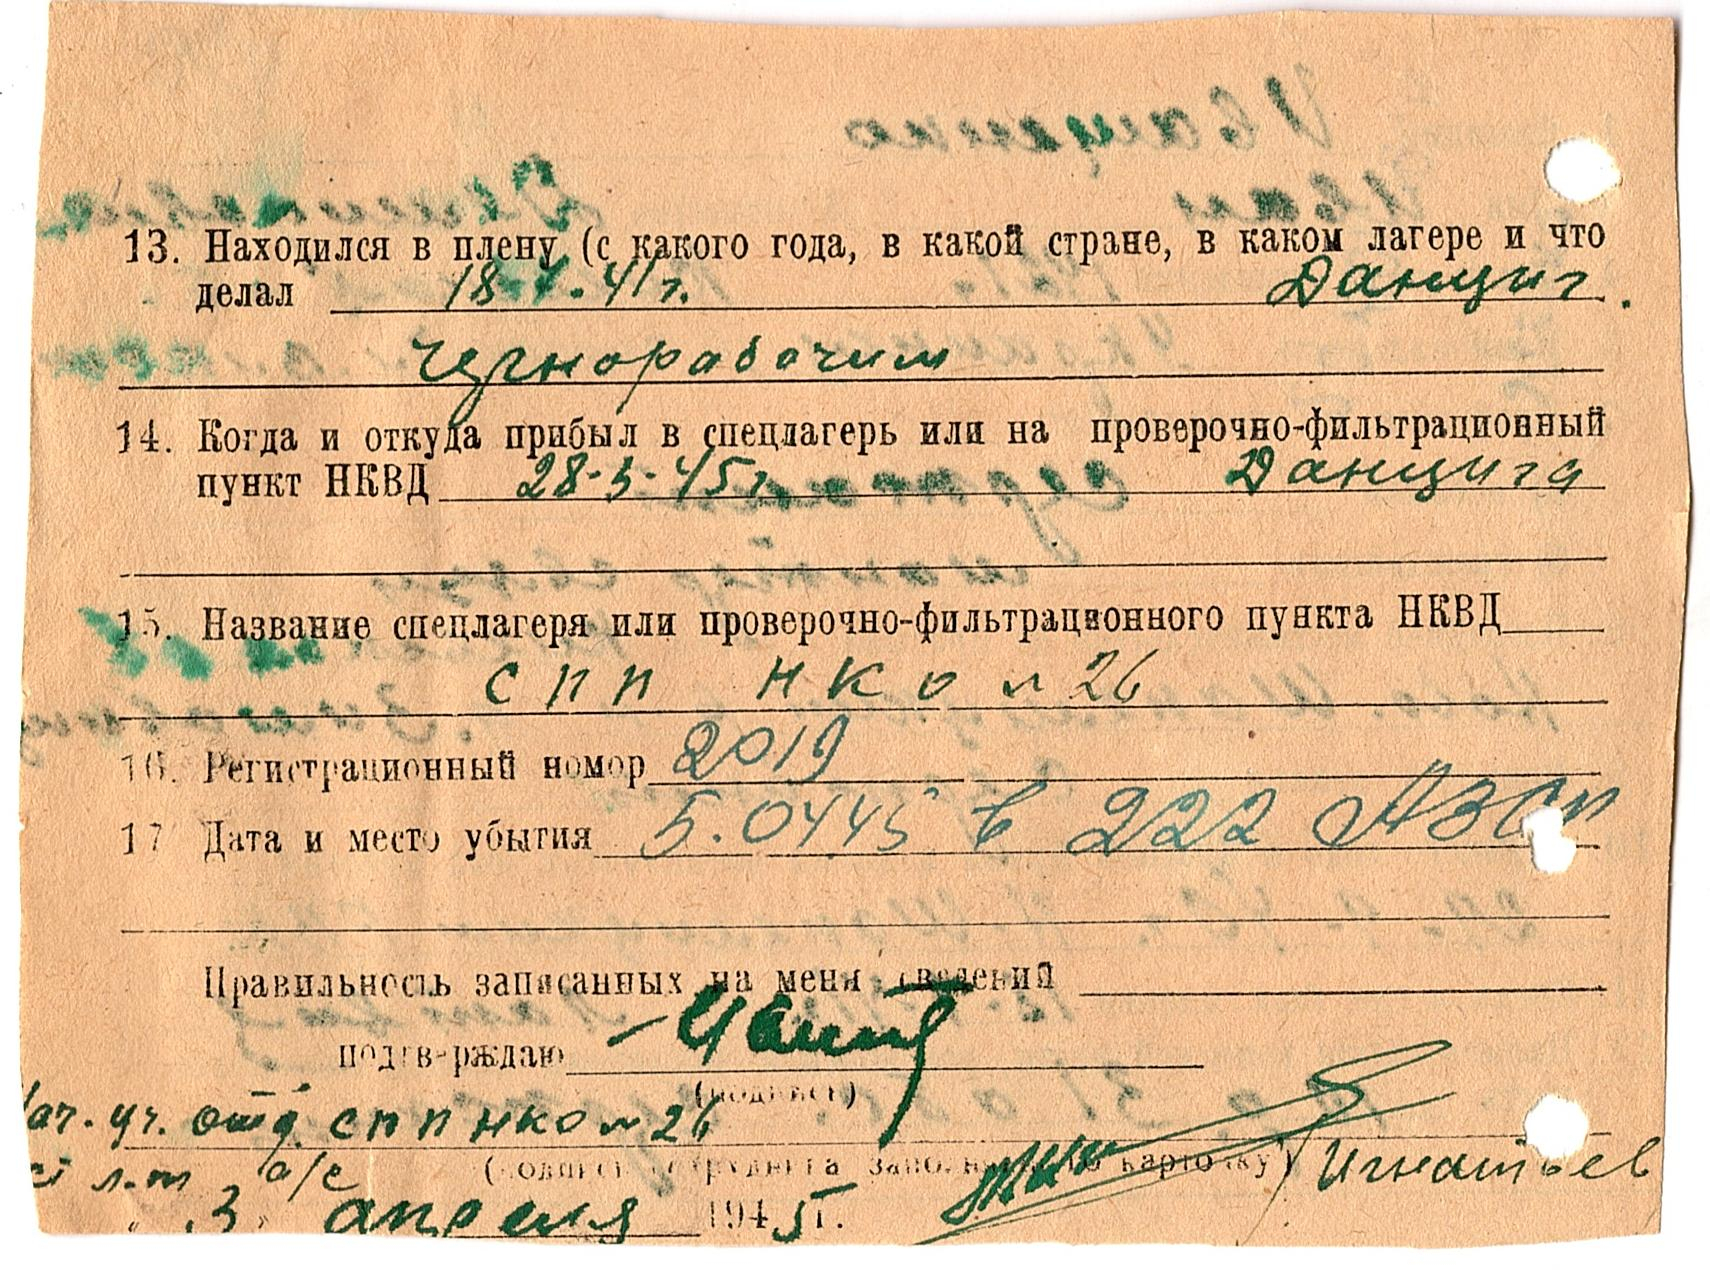 13. Находился в плену (с какого года, в какой стране, в каком лагере и что
делал 41г. Данциг.
чернорабочим
14. Когда и откуда прибыл в спецлагерь или на проверочно-фильтрационный
пункт НКВД 28-3-45г Данцига
15. Название спецлагеря или проверочно-фильтрационного пункта НКВД
СПП НКО № 26
16. Регистрационный номер 2019
17 Дата и место убытия 5.0445 в 222 АЗСП
Правильность записанных на меня сведений
подтверждаю
(подпись)
Нач. уч. отд СПП НКО № 26
(подпись сотрудника заполнявшего карточку) Игнатьев
ст л-т а/с
"3" апреля 1945г.